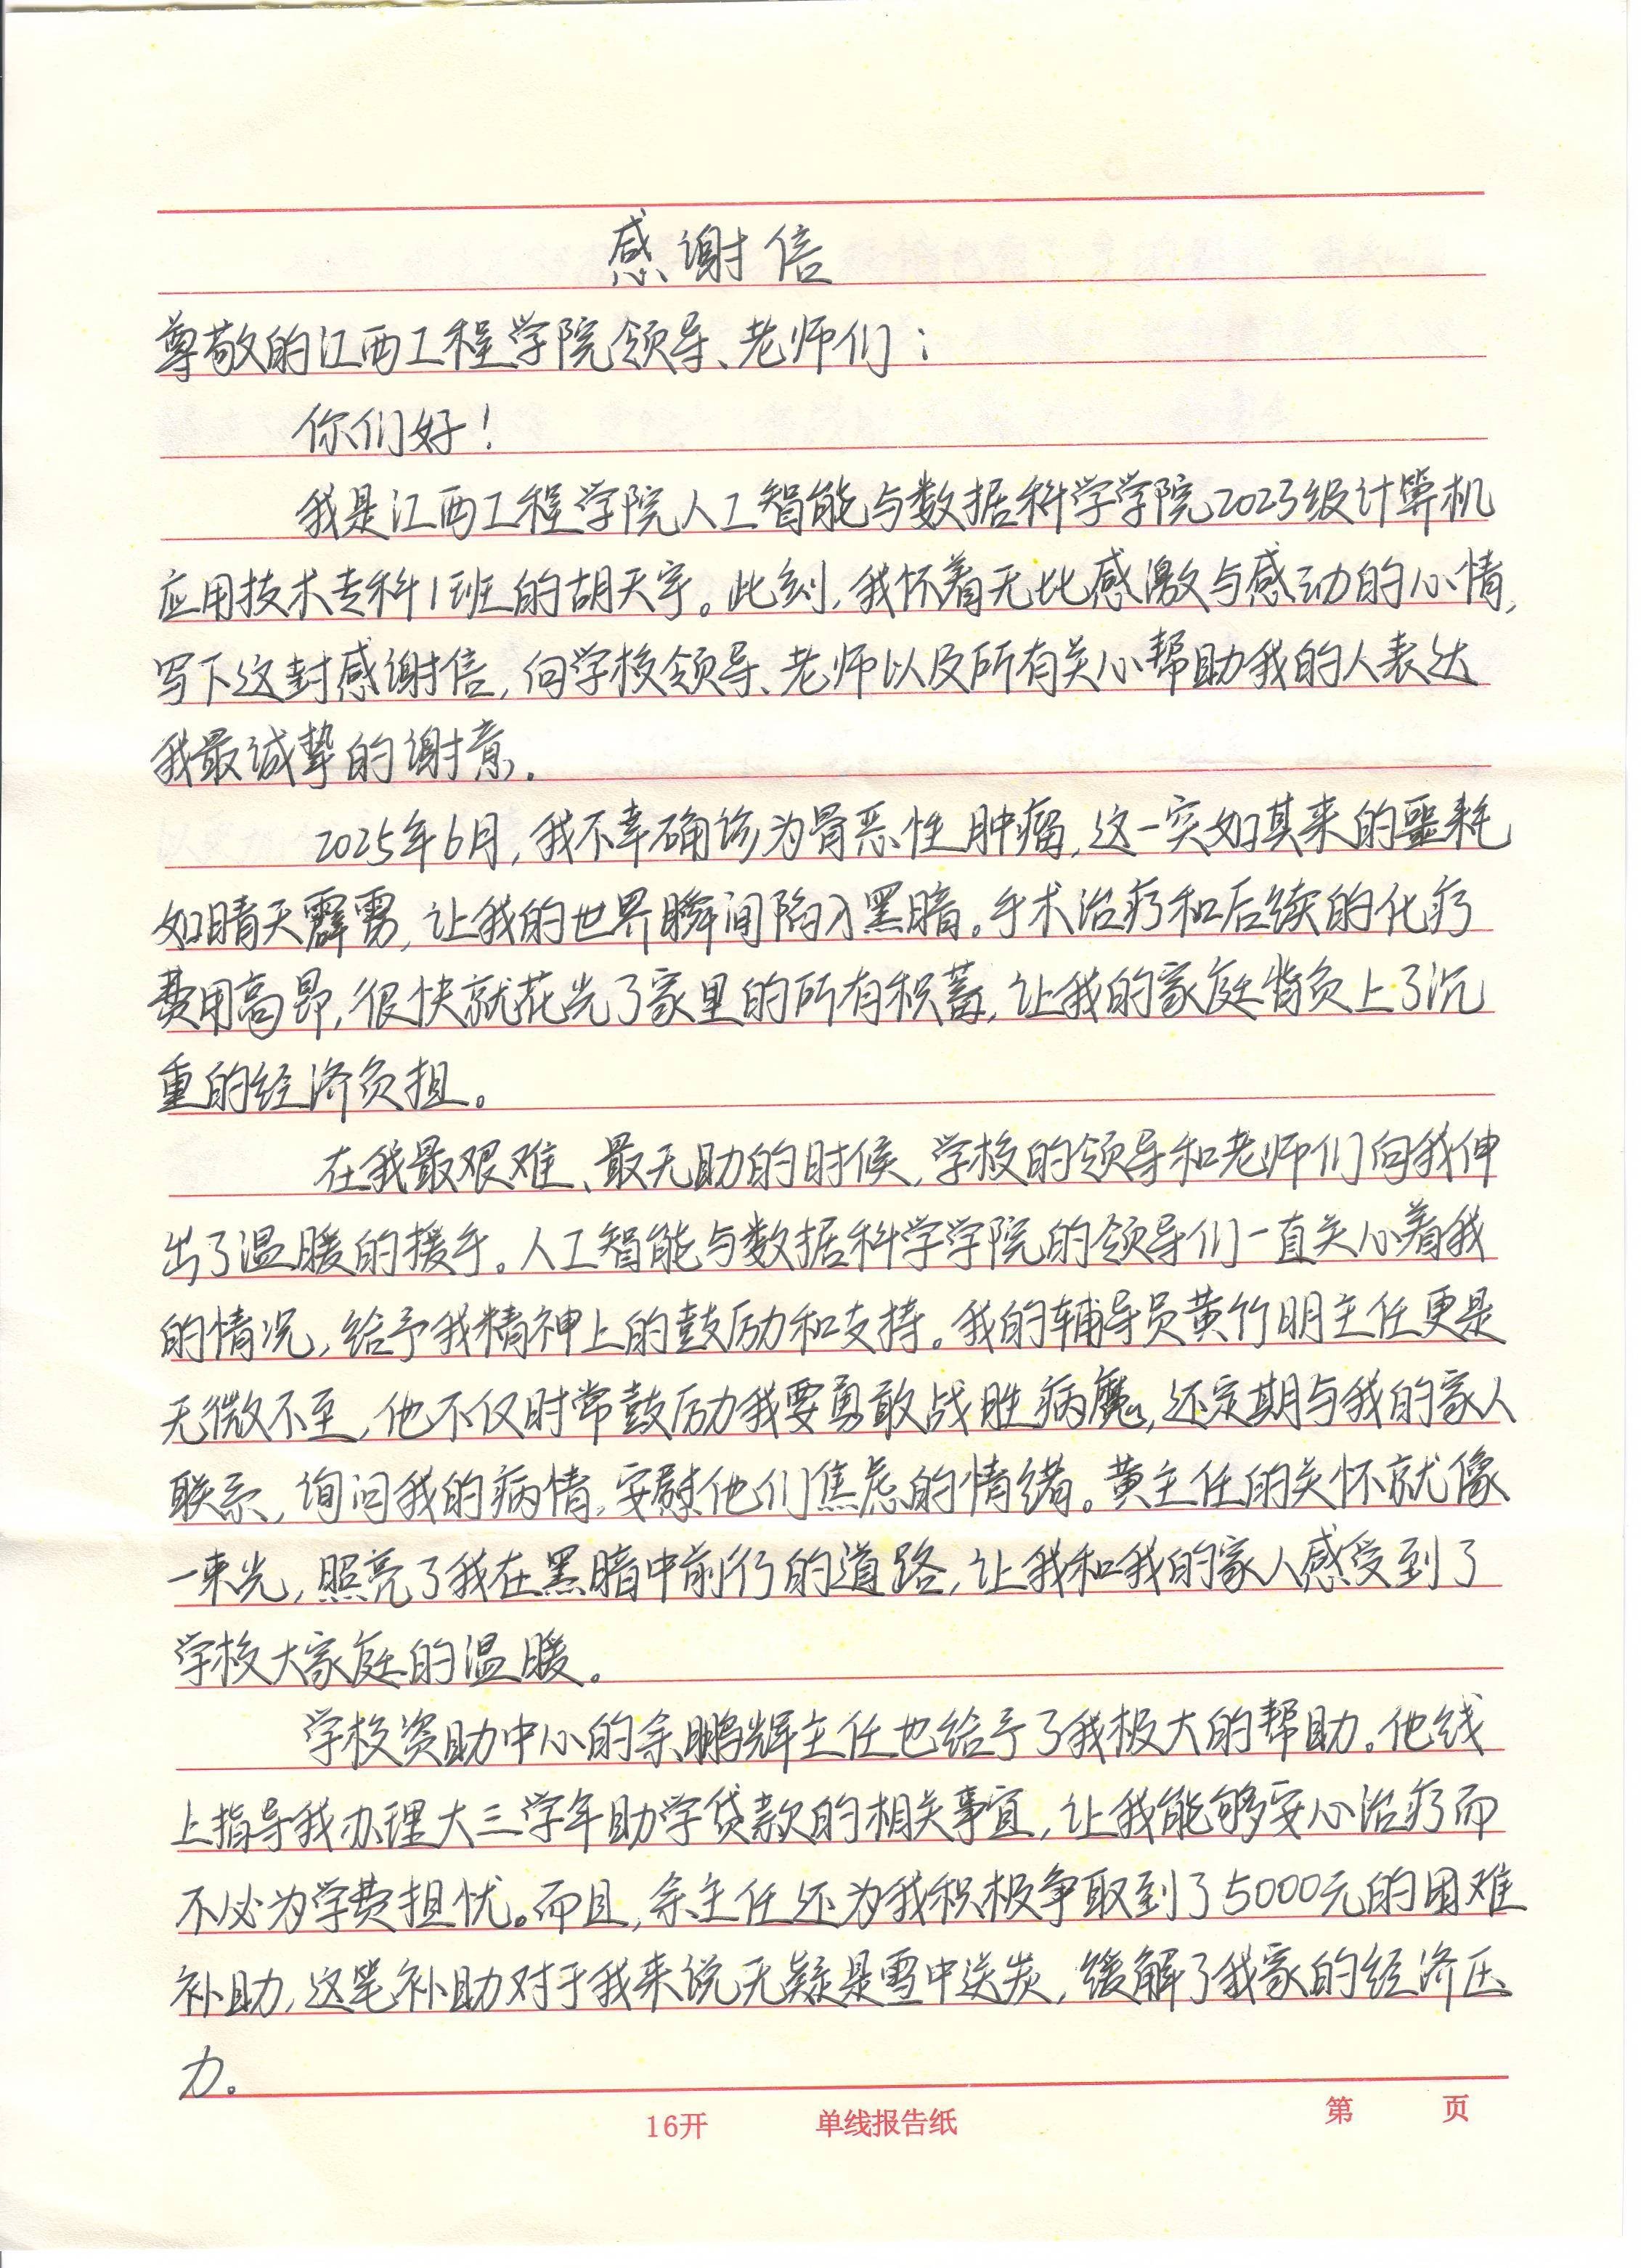 感谢信
尊敬的江西工程学院领导、老师们：
你们好！
我是江西工程学院人工智能与数据科学学院2023级计算机
应用技术专科1班的胡天宇。此刻,我怀着无比感激与感动的心情,
写下这封感谢信,向学校领导、老师以及所有关心帮助我的人表达
我最诚挚的谢意.
2025年6月,我不幸确诊为骨恶性肿瘤,这一突如其来的噩耗
如晴天霹雳,让我的世界瞬间陷入黑暗。手术治疗和后续的化疗
费用高昂,很快就花光了家里的所有积蓄,让我的家庭背负上了沉
重的经济负担。
在我最艰难、最无助的时候,学校的领导和老师们向我伸
出了温暖的援手。人工智能与数据科学学院的领导们一直关心着我
的情况,给予我精神上的鼓励和支持。我的辅导员黄竹明主任更是
无微不至,他不仅时常鼓励我要勇敢战胜病魔,还定期与我的家人
联系,询问我的病情,安慰他们焦虑的情绪。黄主任的关怀就像
一束光,照亮了我在黑暗中前行的道路,让我和我的家人感受到了
学校大家庭的温暖。
学校资助中心的余鹏辉主任也给予了我极大的帮助。他线
上指导我办理大三学年助学贷款的相关事宜,让我能够安心治疗而
不必为学费担忧。而且,余主任还为我积极争取到了5000元的困难
补助,这笔补助对于我来说无疑是雪中送炭,缓解了我家的经济压
力。
16开 单线报告纸 第 页